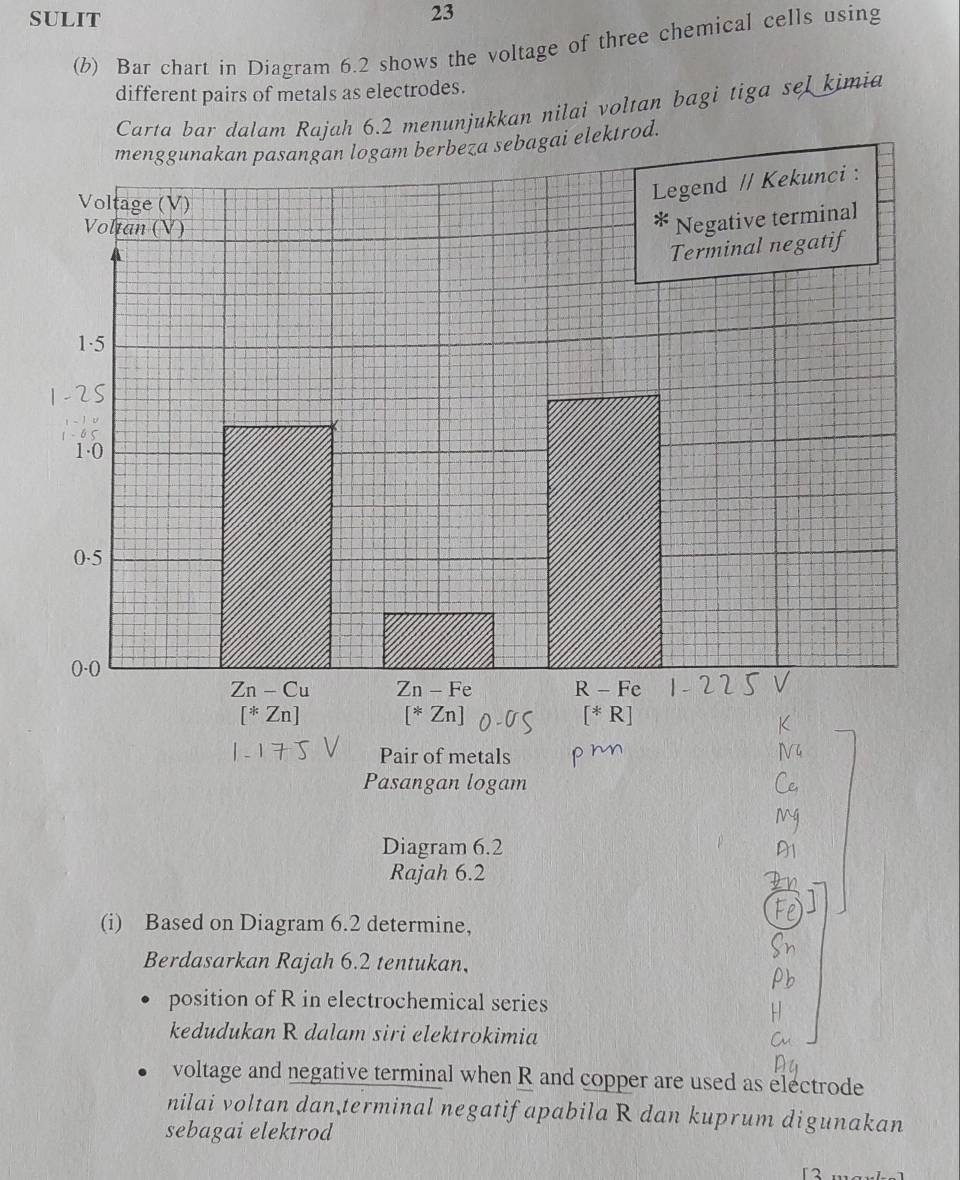 SULIT
23
(b) Bar chart in Diagram 6.2 shows the voltage of three chemical cells using
different pairs of metals as electrodes.
Carta bar dalam Rajah 6.2 menunjukkan nilai voltan bagi tiga sel kimia
menggunakan pasangan logam berbeza sebagai elektrod.
Legend // Kekunci :
* Negative terminal
Terminal negatif
Voltage (V)
Voltan (V)
1·5
1-25
1-10
1-05
1·0
0·5
0·0
Zn – Cu Zn – Fe R – Fe 1-225 V
[* Zn] [* Zn] 0-05 [* R]
1-175 V
Pair of metals
Pasangan logam
K
Na
Ca
Mg
Al
Zn
Fe
Sn
Pb
H
Cu
Ag
Diagram 6.2
Rajah 6.2
(i) Based on Diagram 6.2 determine,
Berdasarkan Rajah 6.2 tentukan,
• position of R in electrochemical series
kedudukan R dalam siri elektrokimia
• voltage and negative terminal when R and copper are used as electrode
nilai voltan dan terminal negatif apabila R dan kuprum digunakan
sebagai elektrod